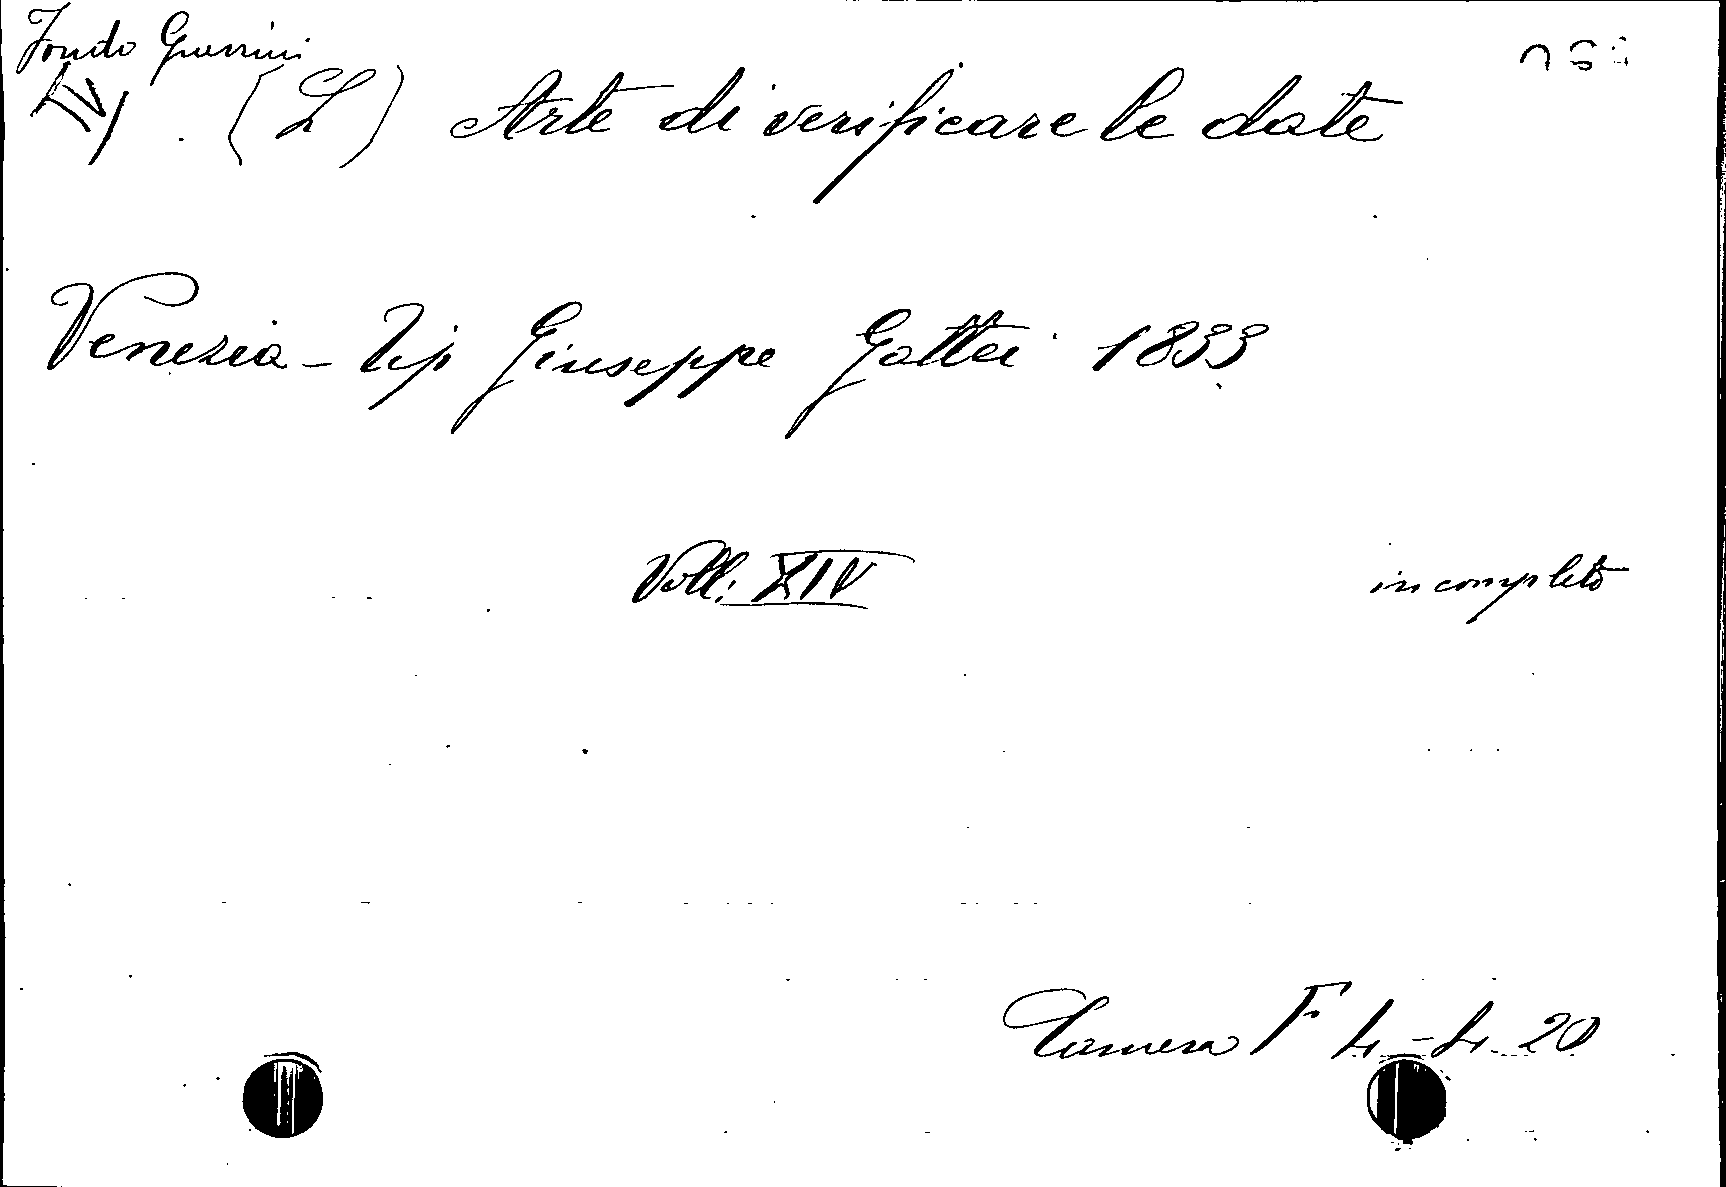 Fondo Guerrini
IV
(L) Arte di verificare le date
Venezia - Tip Giuseppe Gattei 1833
Voll: XIV incompleto
Camera F 4-4 20